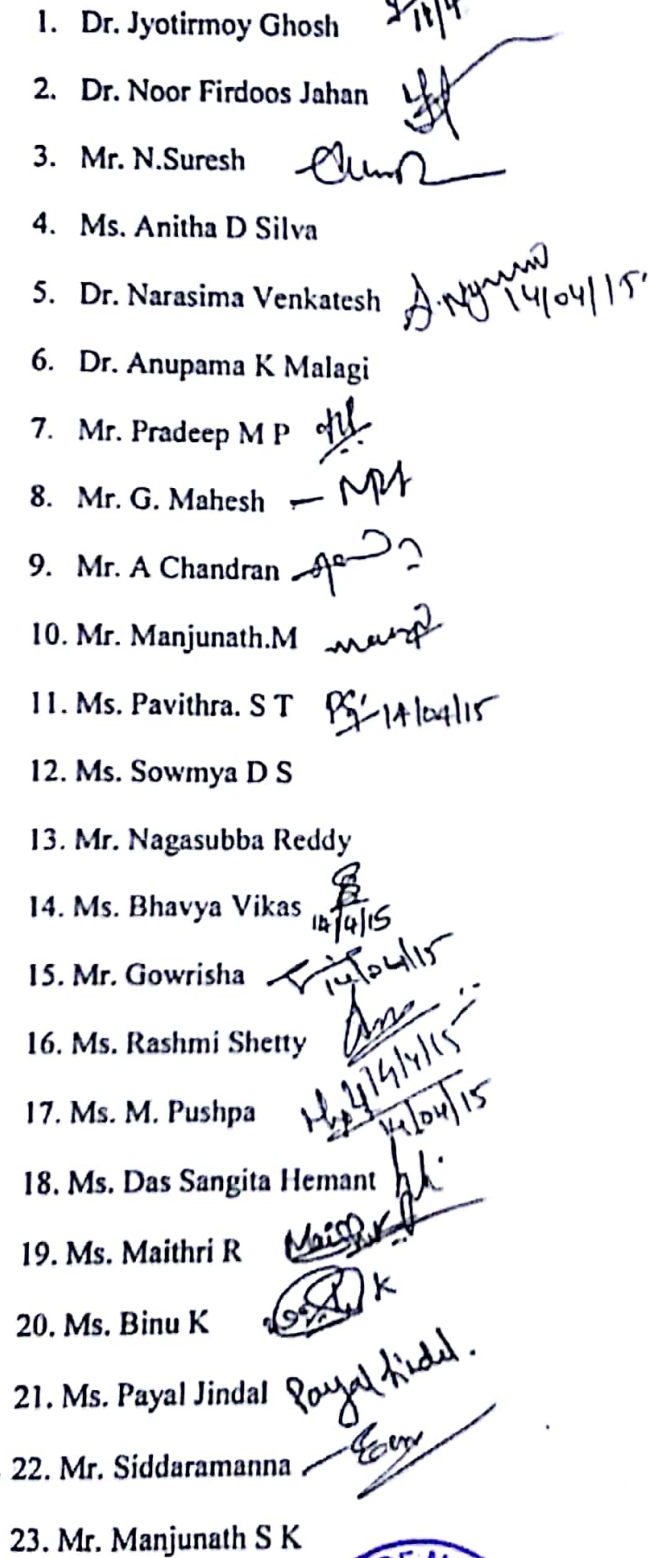 1. Dr. Jyotirmoy Ghosh
2. Dr. Noor Firdoos Jahan
3. Mr. N.Suresh
4. Ms. Anitha D Silva
5. Dr. Narasima Venkatesh 14/04/15
6. Dr. Anupama K Malagi
7. Mr. Pradeep M P
8. Mr. G. Mahesh
9. Mr. A Chandran
10. Mr. Manjunath.M
11. Ms. Pavithra. S T 14/04/15
12. Ms. Sowmya D S
13. Mr. Nagasubba Reddy
14. Ms. Bhavya Vikas 14/4/15
15. Mr. Gowrisha 14/04/15
16. Ms. Rashmi Shetty 14/4/15
17. Ms. M. Pushpa 14/04/15
18. Ms. Das Sangita Hemant
19. Ms. Maithri R
20. Ms. Binu K
21. Ms. Payal Jindal Payal Jindal.
22. Mr. Siddaramanna
23. Mr. Manjunath S K